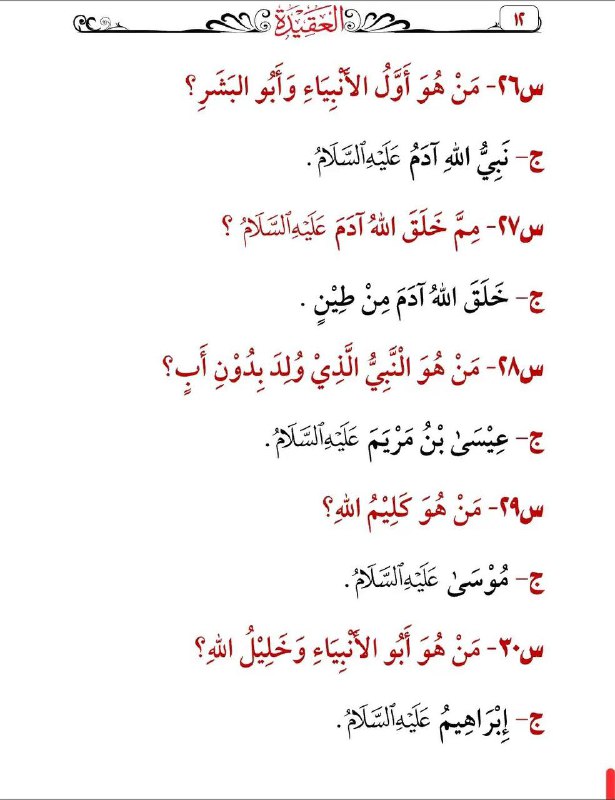 ١٢
العَقِيْدَة
س٢٦- مَنْ هُوَ أَوَّلُ الأَنْبِيَاءِ وَأَبُو البَشَرِ؟
ج- نَبِيُّ اللهِ آدَمُ عَلَيْهِ السَّلَامُ.
س٢٧- مِمَّ خَلَقَ اللهُ آدَمَ عَلَيْهِ السَّلَامُ ؟
ج- خَلَقَ اللهُ آدَمَ مِنْ طِيْنٍ .
س٢٨- مَنْ هُوَ الْنَّبِيُّ الَّذِيْ وُلِدَ بِدُوْنِ أَبٍ؟
ج- عِيْسَىٰ بْنُ مَرْيَمَ عَلَيْهِ السَّلَامُ.
س٢٩- مَنْ هُوَ كَلِيْمُ اللهِ؟
ج- مُوْسَىٰ عَلَيْهِ السَّلَامُ.
س٣٠- مَنْ هُوَ أَبُو الأَنْبِيَاءِ وَخَلِيْلُ اللهِ؟
ج- إِبْرَاهِيمُ عَلَيْهِ السَّلَامُ.